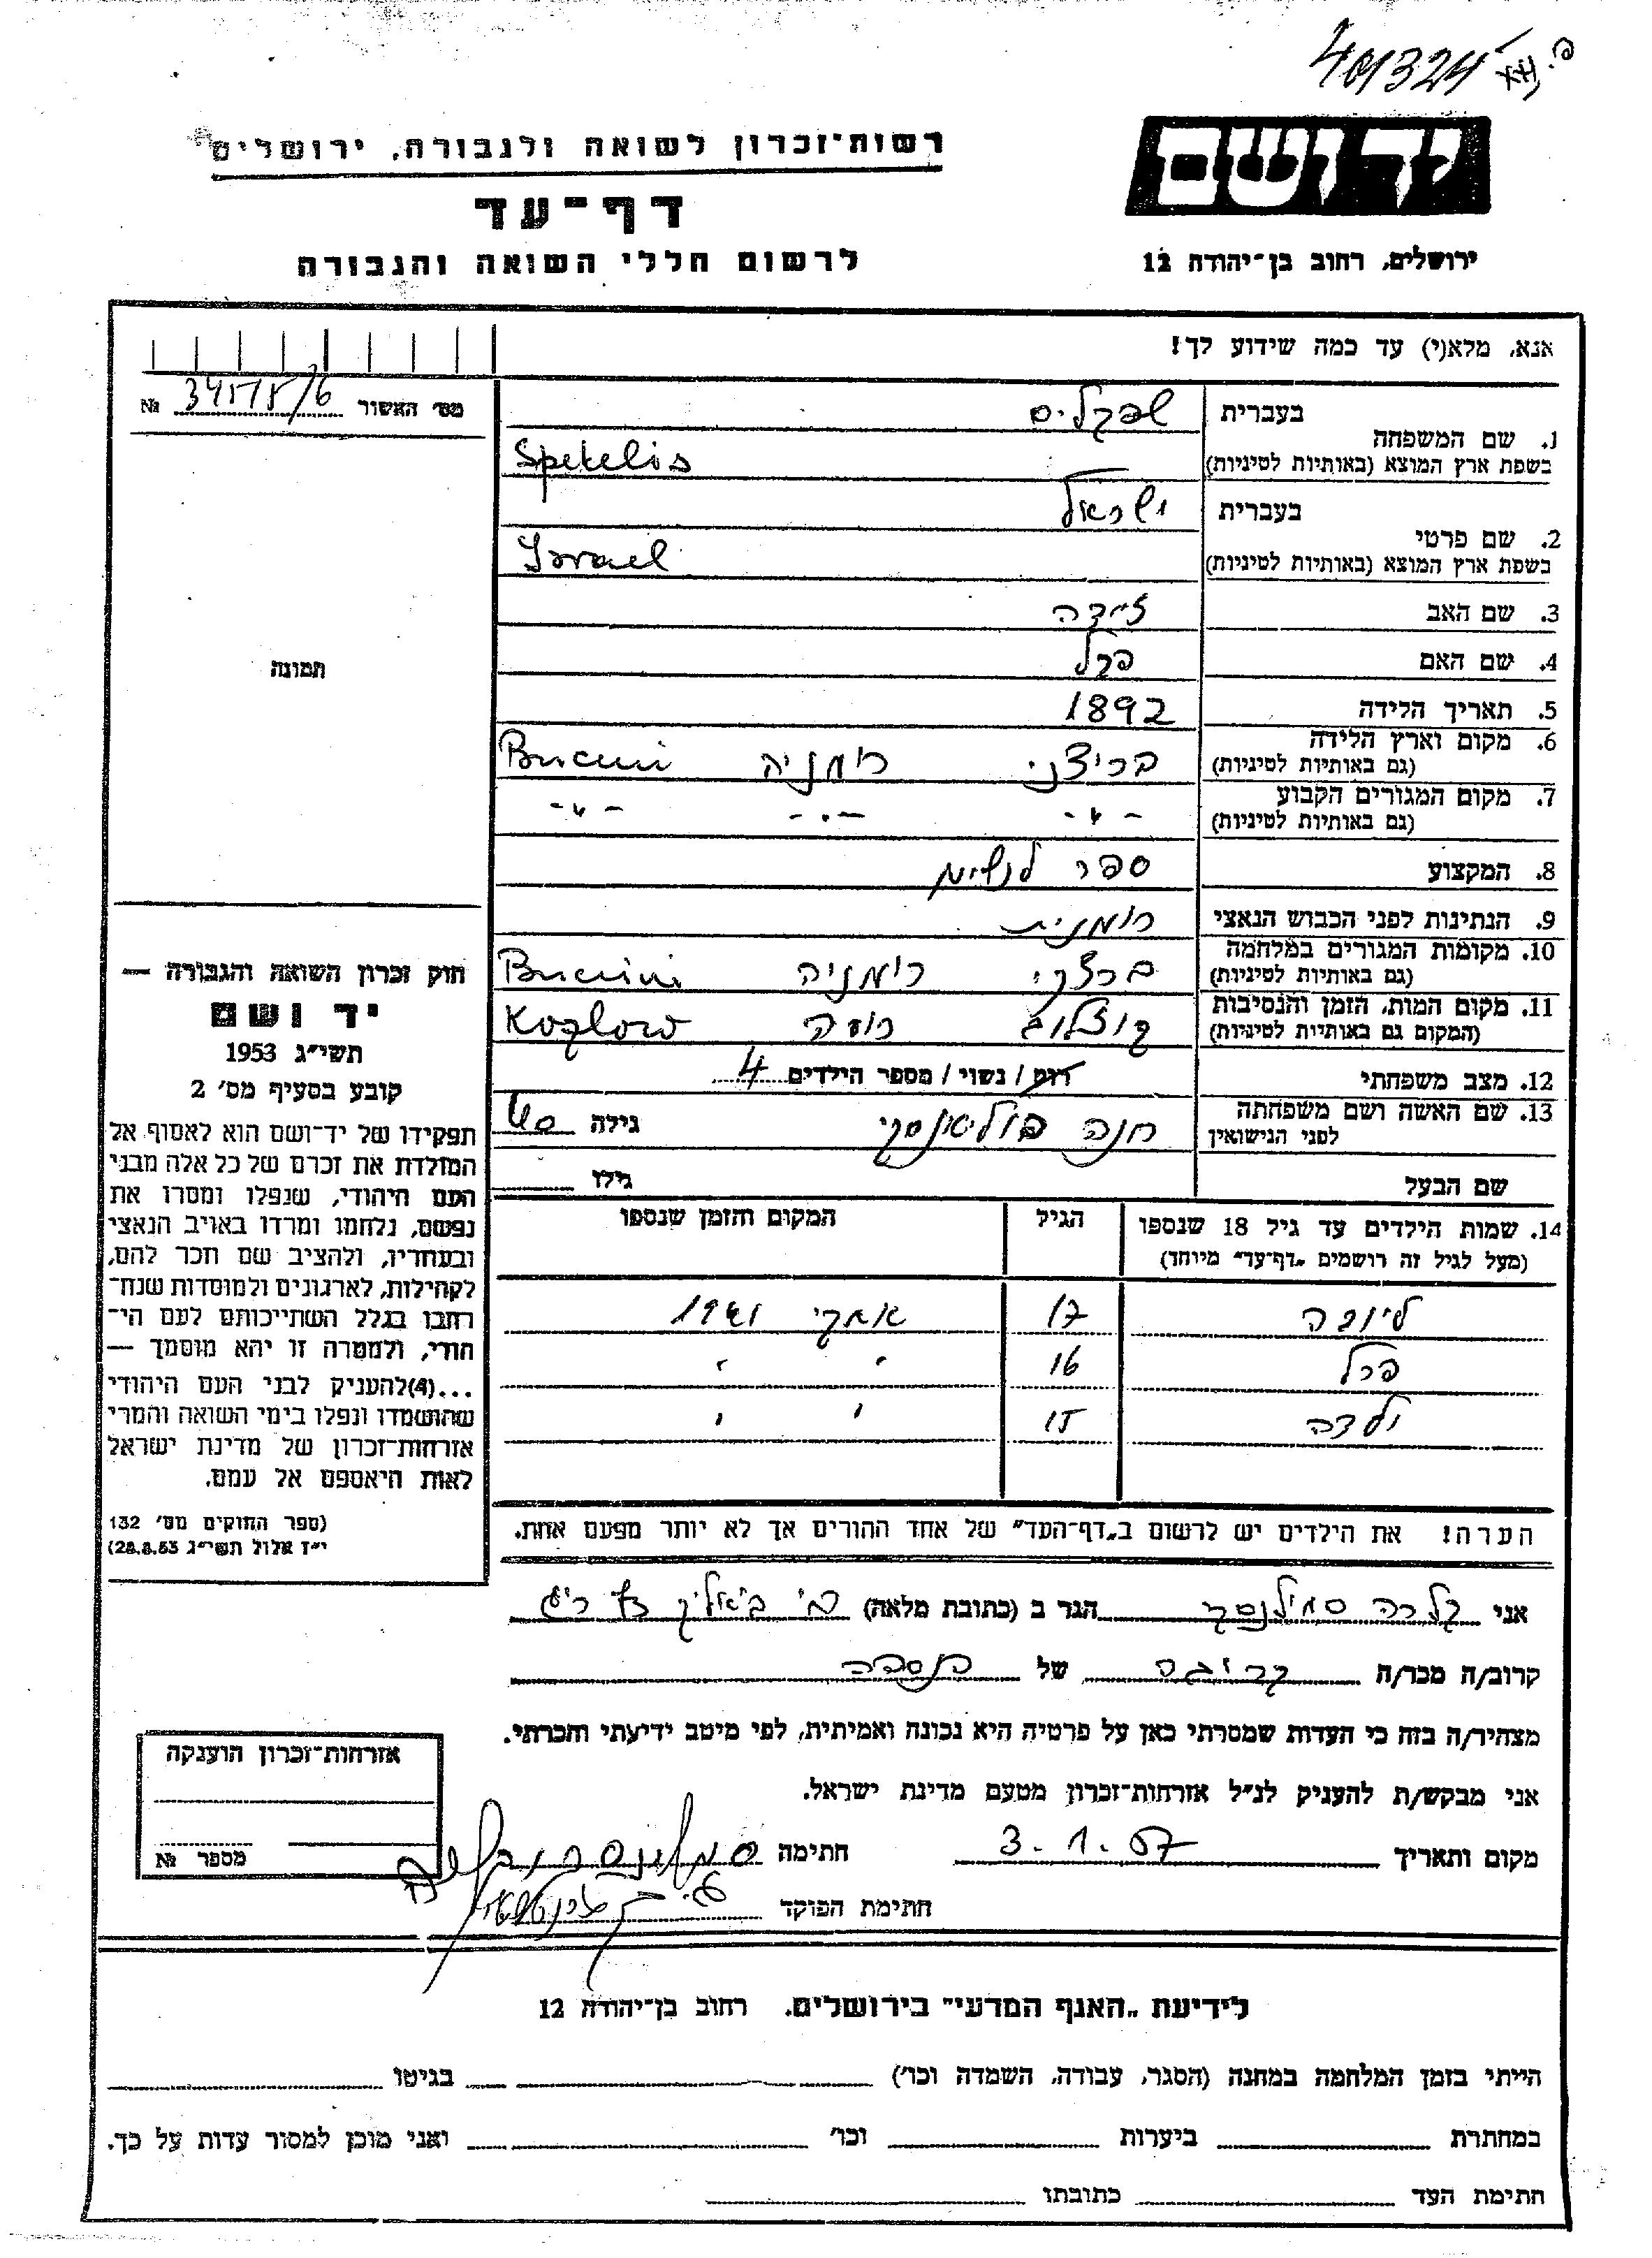 401324
יד ושם
רשות־זכרון לשואה ולגבורה, ירושלים
דף־עד
לרשום חללי השואה והגבורה
ירושלים, רחוב בן־יהודה 12
אנא, מלא(י) עד כמה שידוע לך!
מס׳ האשור 34575/6 №
תמונה
1. שם המשפחה
בעברית שפקליס
בשפת ארץ המוצא (באותיות לטיניות) Spekelis
2. שם פרטי
בעברית ישראל
בשפת ארץ המוצא (באותיות לטיניות) Israel
3. שם האב זיידה
4. שם האם פרל
5. תאריך הלידה 1892
6. מקום וארץ הלידה
(גם באותיות לטיניות) בריצני רומניה Bricuni
7. מקום המגורים הקבוע
(גם באותיות לטיניות) -"- -"- -"-
8. המקצוע ספר לנשים
9. הנתינות לפני הכבוש הנאצי רומנית
10. מקומות המגורים במלחמה
(גם באותיות לטיניות) ברצני רומניה Bricuni
11. מקום המות, הזמן והנסיבות
(המקום גם באותיות לטיניות) קוזלוב רוסיה Kozlow
12. מצב משפחתי רווק / נשוי / מספר הילדים 4
13. שם האשה ושם משפחתה
לפני הנישואין חנה גילה
שם הבעל גילו
14. שמות הילדים עד גיל 18 שנספו הגיל המקום והזמן שנספו
(מעל לגיל זה רושמים „דף־עד״ מיוחד)
ליובה 17 1941
פרל 16 " "
15 " "
הערה! את הילדים יש לרשום ב„דף־העד״ של אחד ההורים אך לא יותר מפעם אחת.
חוק זכרון השואה והגבורה —
יד ושם
תשי״ג 1953
קובע בסעיף מס׳ 2
תפקידו של יד־ושם הוא לאסוף אל
המולדת את זכרם של כל אלה מבני
העם היהודי, שנפלו ומסרו את
נפשם, נלחמו ומרדו באויב הנאצי
ובעוזריו, ולהציב שם וזכר להם,
לקהילות, לארגונים ולמוסדות שנח־
רבו בגלל השתייכותם לעם הי־
הודי, ולמטרה זו יהא מוסמך —
...(4)להעניק לבני העם היהודי
שהושמדו ונפלו בימי השואה והמרי
אזרחות־זכרון של מדינת ישראל
לאות היאספם אל עמם.
(ספר החוקים מס׳ 132
י״ז אלול תשי״ג 28.8.53)
אני קלרה סמילנסקי הגר ב (כתובת מלאה)
קרוב/ה מכר/ה קרובה של הנספה
מצהיר/ה בזה כי העדות שמסרתי כאן על פרטיה היא נכונה ואמיתית, לפי מיטב ידיעתי והכרתי.
אני מבקש/ת להעניק לנ״ל אזרחות־זכרון מטעם מדינת ישראל.
מקום ותאריך 3.1.57 חתימה
חתימת הפוקד
אזרחות־זכרון הוענקה
מספר №
לידיעת „האגף המדעי״ בירושלים, רחוב בן־יהודה 12
הייתי בזמן המלחמה במחנה (הסגר, עבודה, השמדה וכו׳) בגיטו
במחתרת ביערות וכו׳ ואני מוכן למסור עדות על כך.
חתימת העד כתובתו